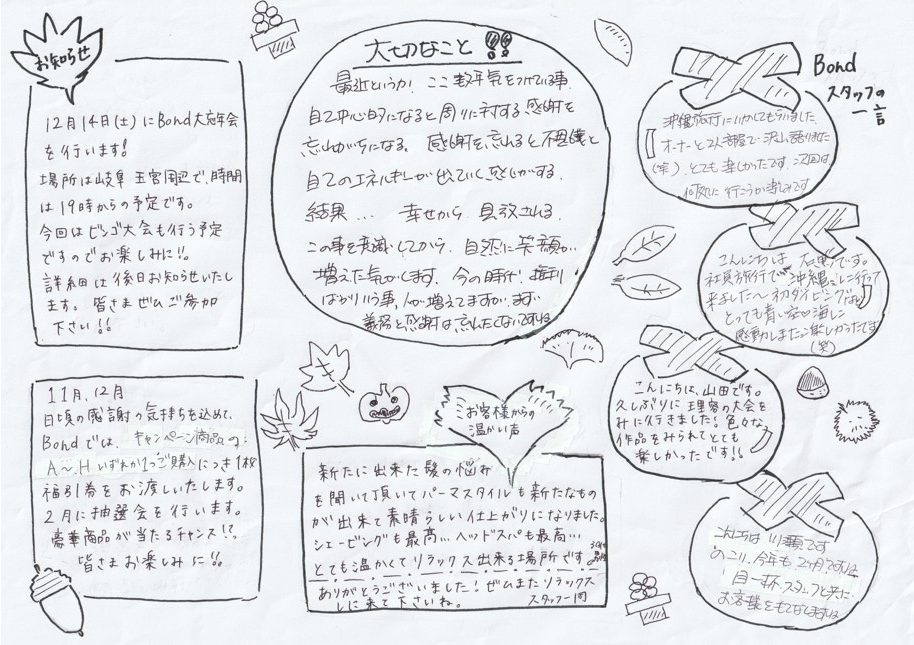 お知らせ
12月14日(土)にBond大忘年会
を行います!
場所は岐阜 玉宮周辺で、時間
は19時からの予定です。
今回はビンゴ大会も行う予定
ですのでお楽しみに!!
詳細は後日お知らせいたし
ます。皆さまぜひご参加
下さい!!
11月、12月
日頃の感謝の気持ちを込めて、
Bondでは、キャンペーン商品の
A〜Hいずれか1つご購入につき1枚
福引券をお渡しいたします。
2月に抽選会を行います。
豪華商品が当たるチャンス!?
皆さまお楽しみに!!
大切なこと!!
最近というか、ここ数年気をつけている事、
自己中心的になると周りに対する感謝を
忘れがちになる。感謝を忘れると不思議と
自己のエネルギーが出ていく感じがする。
結果... 幸せから見放される、
この事を意識してから、自然に笑顔が
増えた気がします、今の時代、権利
ばかり言う事、人が増えてますが、まず
義務と感謝は忘れたくないですね
お客様からの
温かい声
新たに出来た髪の悩み
を聞いて頂いてパーマスタイルも新たなもの
が出来て素晴らしい仕上がりになりました。
シェービングも最高...ヘッドスパも最高...
とても温かくてリラックス出来る場所です。
ありがとうございました!ぜひまたリラックス
しに来て下さいね。
スタッフ一同
Bond
スタッフの
一言
沖縄旅行にいかしてもらいました。
オーナーと2人部屋で沢山語りました
(笑)とても楽しかったです。次回は
何処に行こうか楽しみです
こんにちは、です。
社員旅行で沖縄に行って
来ました〜初ダイビング
とっても青い空♡海に
感動しました♫楽しかったです
(笑)
こんにちは、山田です。
久しぶりに理容の大会を
みに行きました!色々な
作品をみられてとても
楽しかったです!!
こんにちは川瀬です
のこり、今年も2ヶ月ですね
目一杯スタッフと共に
お客様をもてなしますね